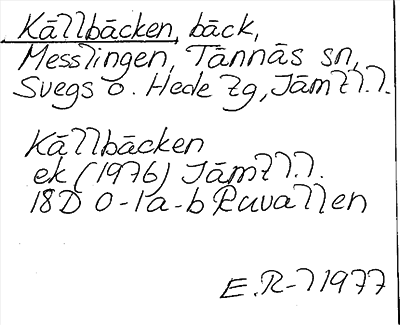 Källbäcken, bäck,
Messlingen, Tännäs sn,
Svegs o. Hede tg, Jämtl.l.
Källbäcken
ek (1976) Jämtl.l.
18D 0-1a-b Ruvallen
E.R-l 1977